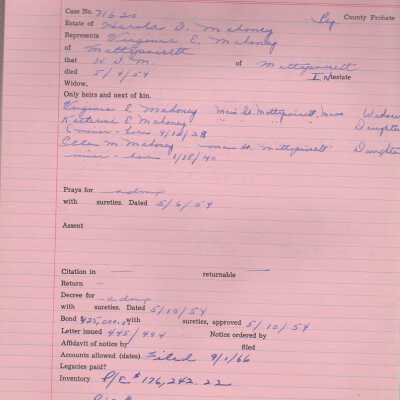 Case No. 71620 Ply County Probate
Estate of Harold D. Mahoney
Represents Virginia E. Mahoney
of Mattapoisett
that H. D. M. of Mattapoisett
died 5/4/54 Intestate
Widow,
Only heirs and next of kin.
Virginia E. Mahoney Main St. Mattapoisett, Mass Widow
E. Mahoney " " Daughter
(minor - born
Ellen M. Mahoney Main St. Mattapoisett Daughter
minor - born 1/28/40
Prays for admx
with sureties. Dated 5/6/54
Assent
Citation in returnable
Return
Decree for admx
with sureties. Dated 5/10/54
Bond $25,000.00 with sureties, approved 5/10/54
Letter issued 445/494 Notice ordered by
Affidavit of notice by filed
Accounts allowed (dates) Filed 9/1/66
Legacies paid?
Inventory P/C $176,242.22